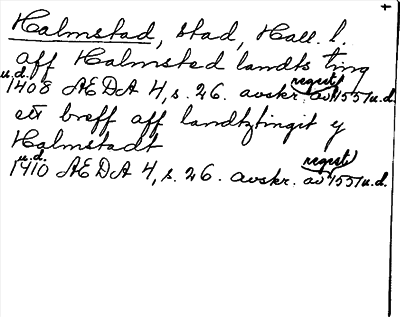 Halmstad, stad, Hall. l.
aff Halmsted landts ting
u.d. 1408 ÆDA 4, s. 26. avskr. av regest 1551 u.d.
ett breff aff landtztingit y
Halmstadt
u.d. 1410 ÆDA 4, s. 26. avskr. av regest 1551 u.d.